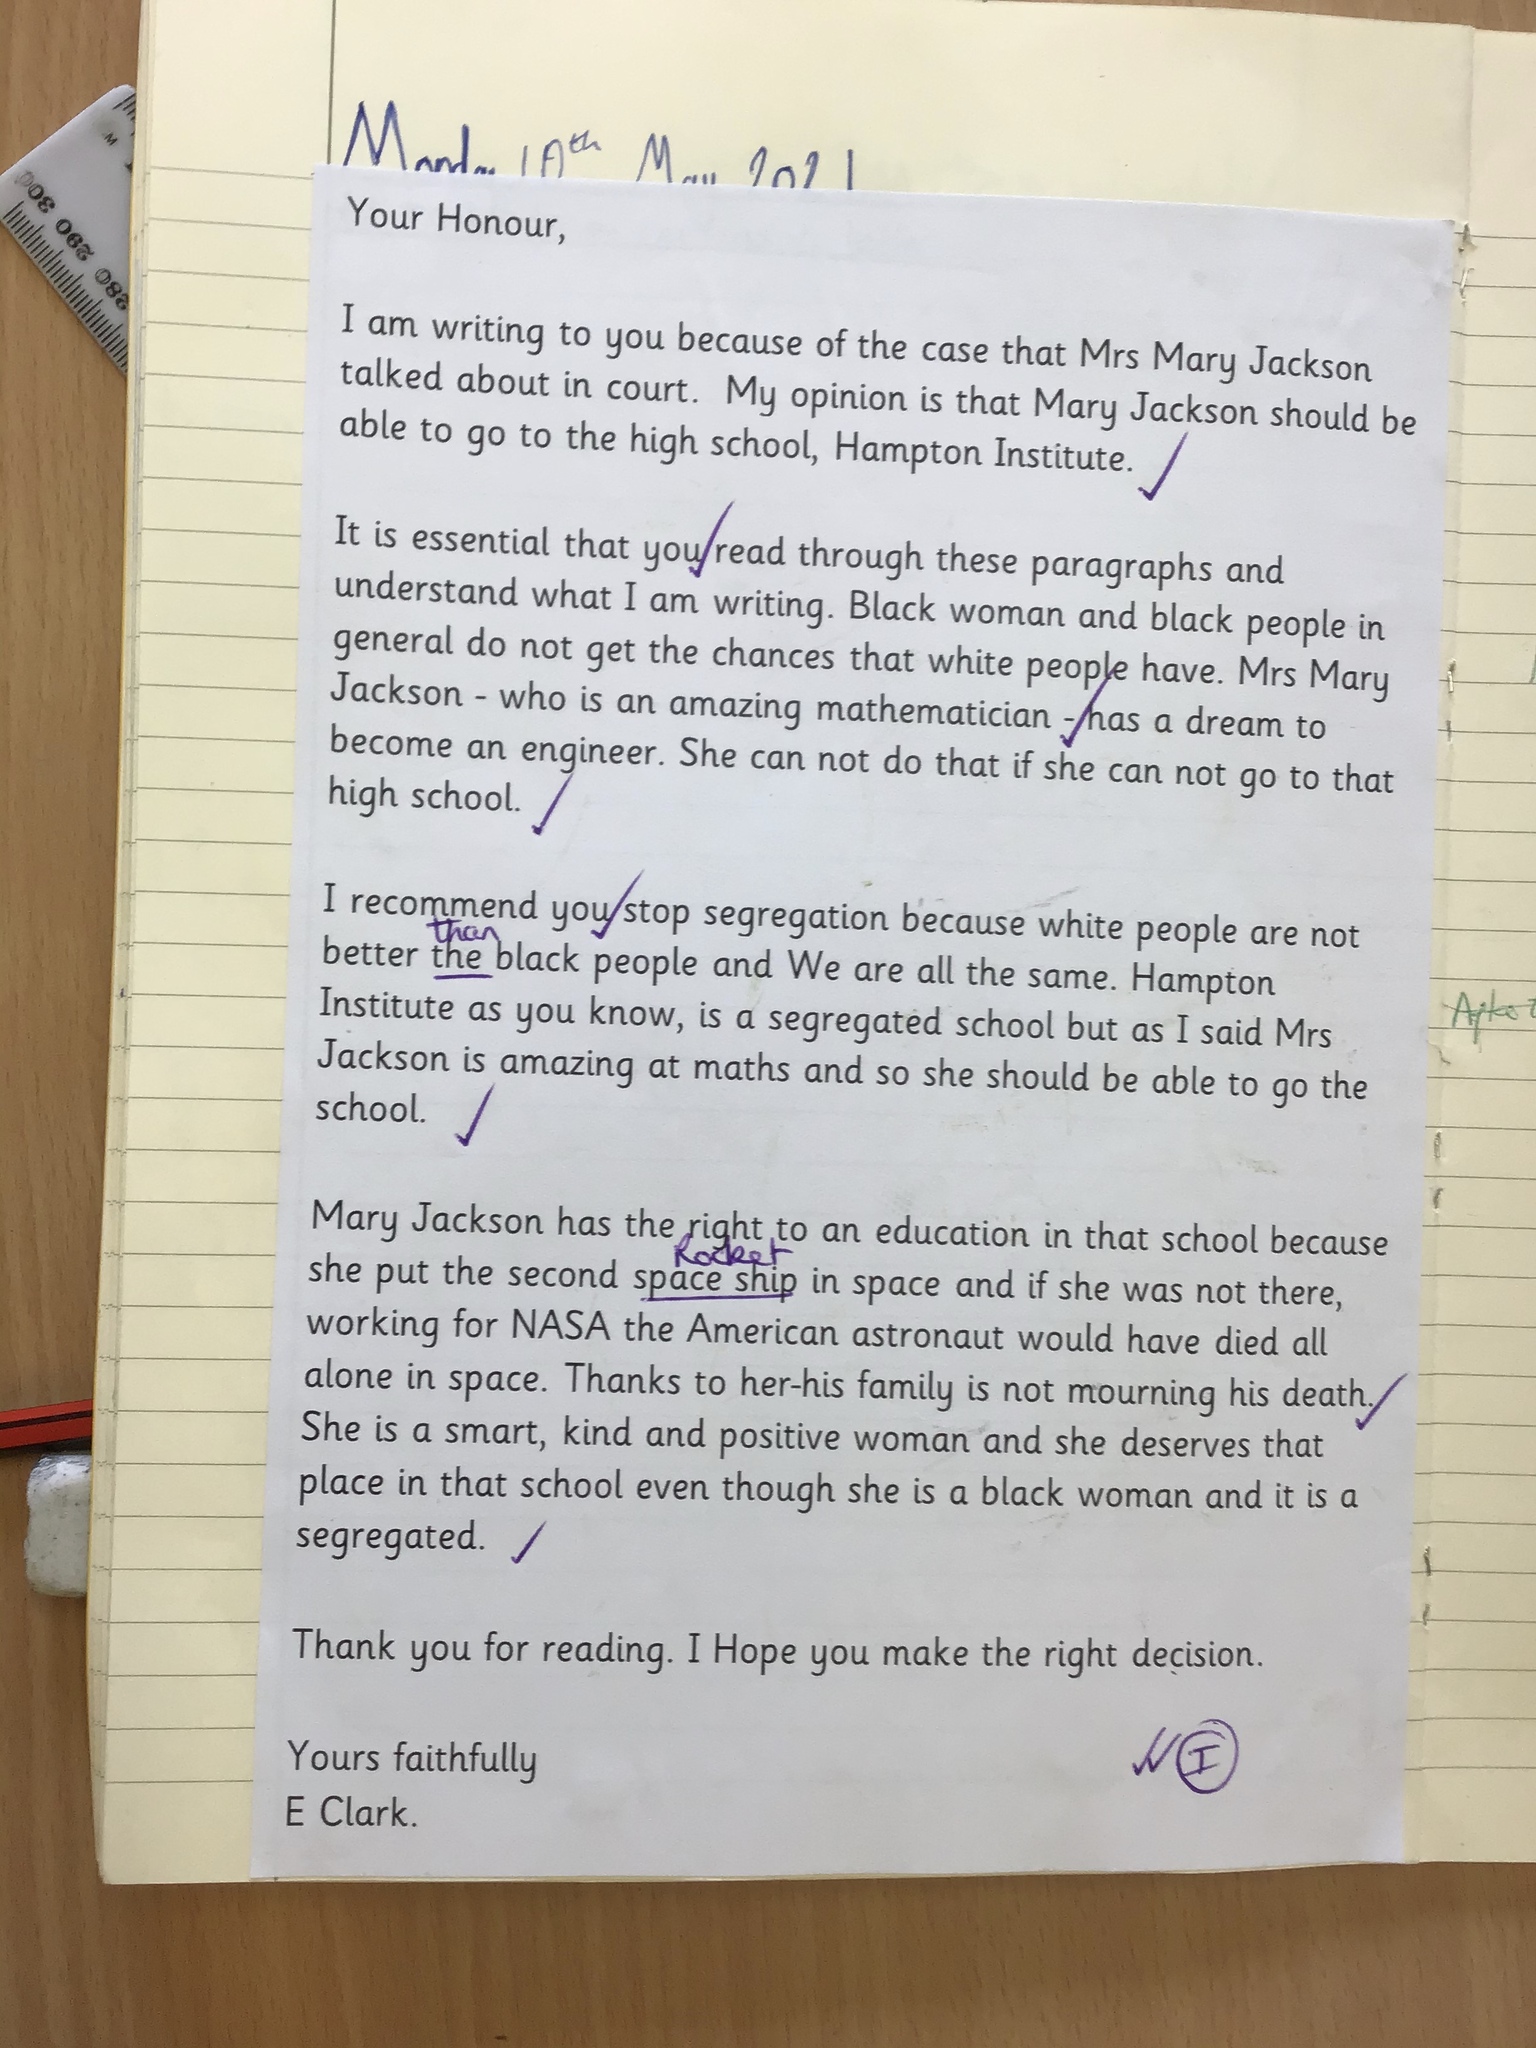 Monday 10th May 2021
Your Honour,
I am writing to you because of the case that Mrs Mary Jackson
talked about in court. My opinion is that Mary Jackson should be
able to go to the high school, Hampton Institute.
It is essential that you read through these paragraphs and
understand what I am writing. Black woman and black people in
general do not get the chances that white people have. Mrs Mary
Jackson - who is an amazing mathematician - has a dream to
become an engineer. She can not do that if she can not go to that
high school.
I recommend you stop segregation because white people are not
than
better the black people and We are all the same. Hampton
Institute as you know, is a segregated school but as I said Mrs
Jackson is amazing at maths and so she should be able to go the
school.
Mary Jackson has the right to an education in that school because
Rocket
she put the second space ship in space and if she was not there,
working for NASA the American astronaut would have died all
alone in space. Thanks to her-his family is not mourning his death.
She is a smart, kind and positive woman and she deserves that
place in that school even though she is a black woman and it is a
segregated.
Thank you for reading. I Hope you make the right decision.
I
Yours faithfully
E Clark.
300 290 280